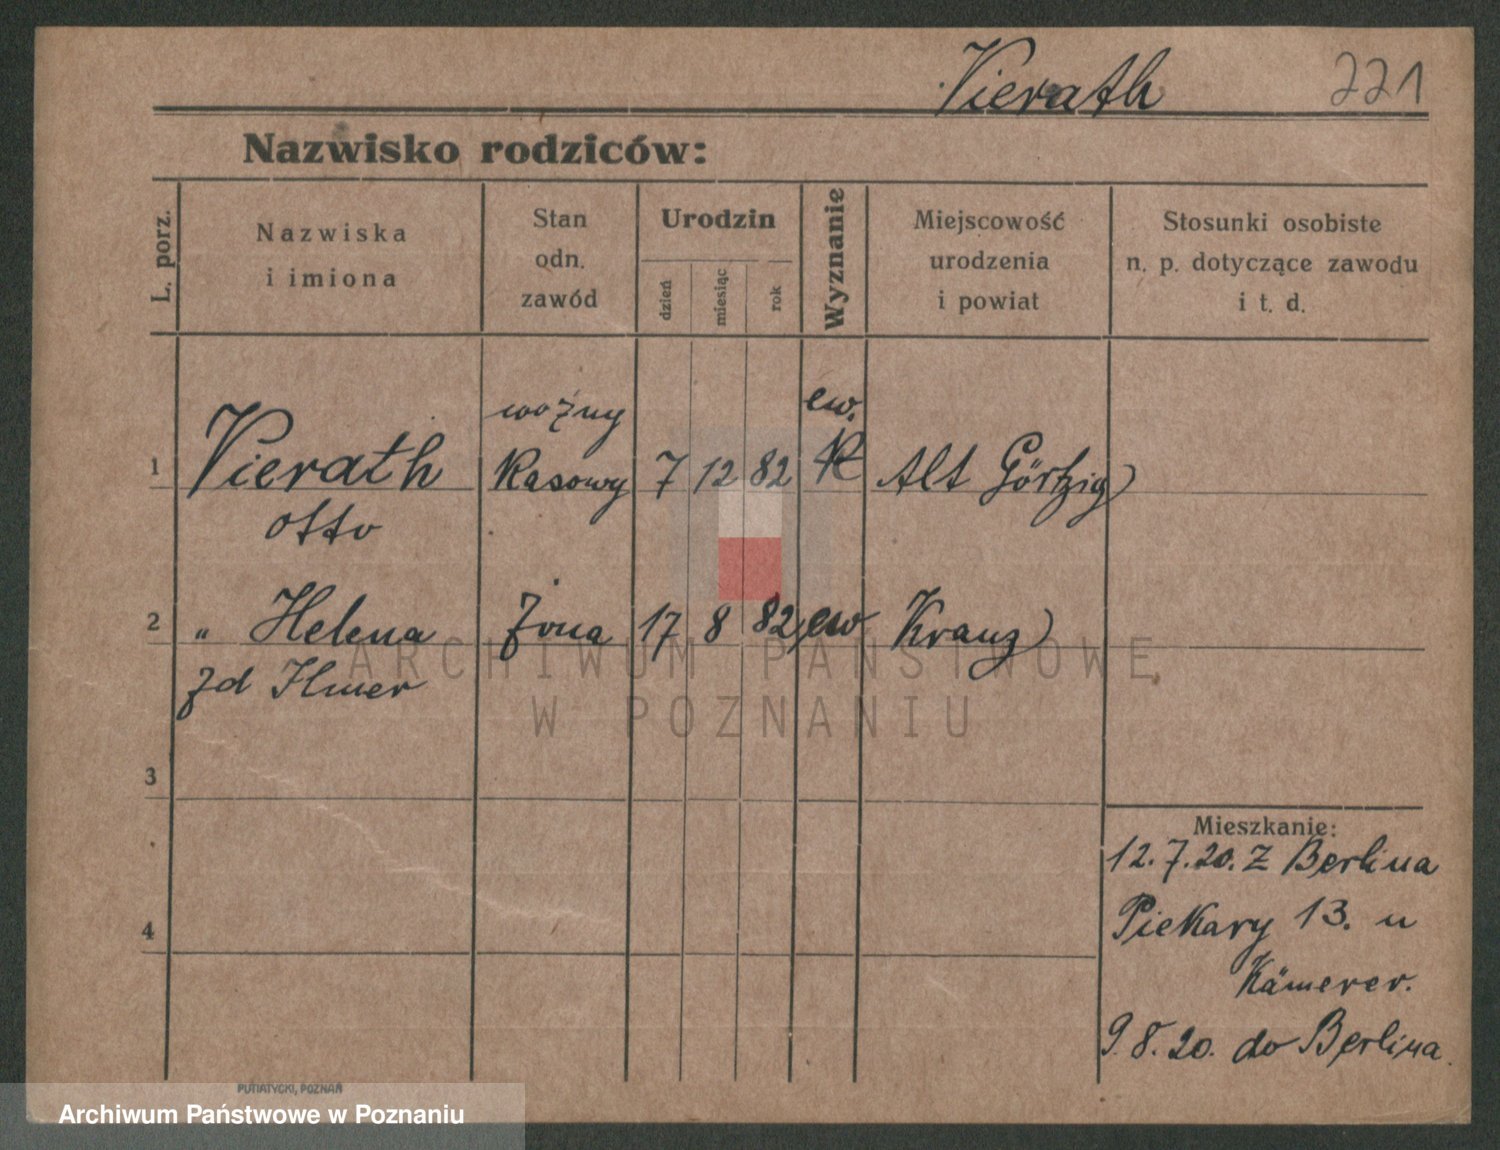 Vierath 221
Nazwisko rodziców:
L. porz.
Nazwiska
i imiona
Stan
odn.
zawód
Urodzin
dzień
miesiąc
rok
Wyznanie
Miejscowość
urodzenia
i powiat
Stosunki osobiste
n. p. dotyczące zawodu
i t. d.
woźny ew.
1 Vierath Kasowy 7 12 82 K Alt Görtzig
Otto
2 " Helena żona 17 8 82 ew Kranz
zd Ilmer
ARCHIWUM PAŃSTWOWE
W POZNANIU
3
4
Mieszkanie:
12.7.20. z Berlina
Piekary 13. u
Kämerer.
9.8.20. do Berlina.
PUTIATYCKI, POZNAŃ
Archiwum Państwowe w Poznaniu